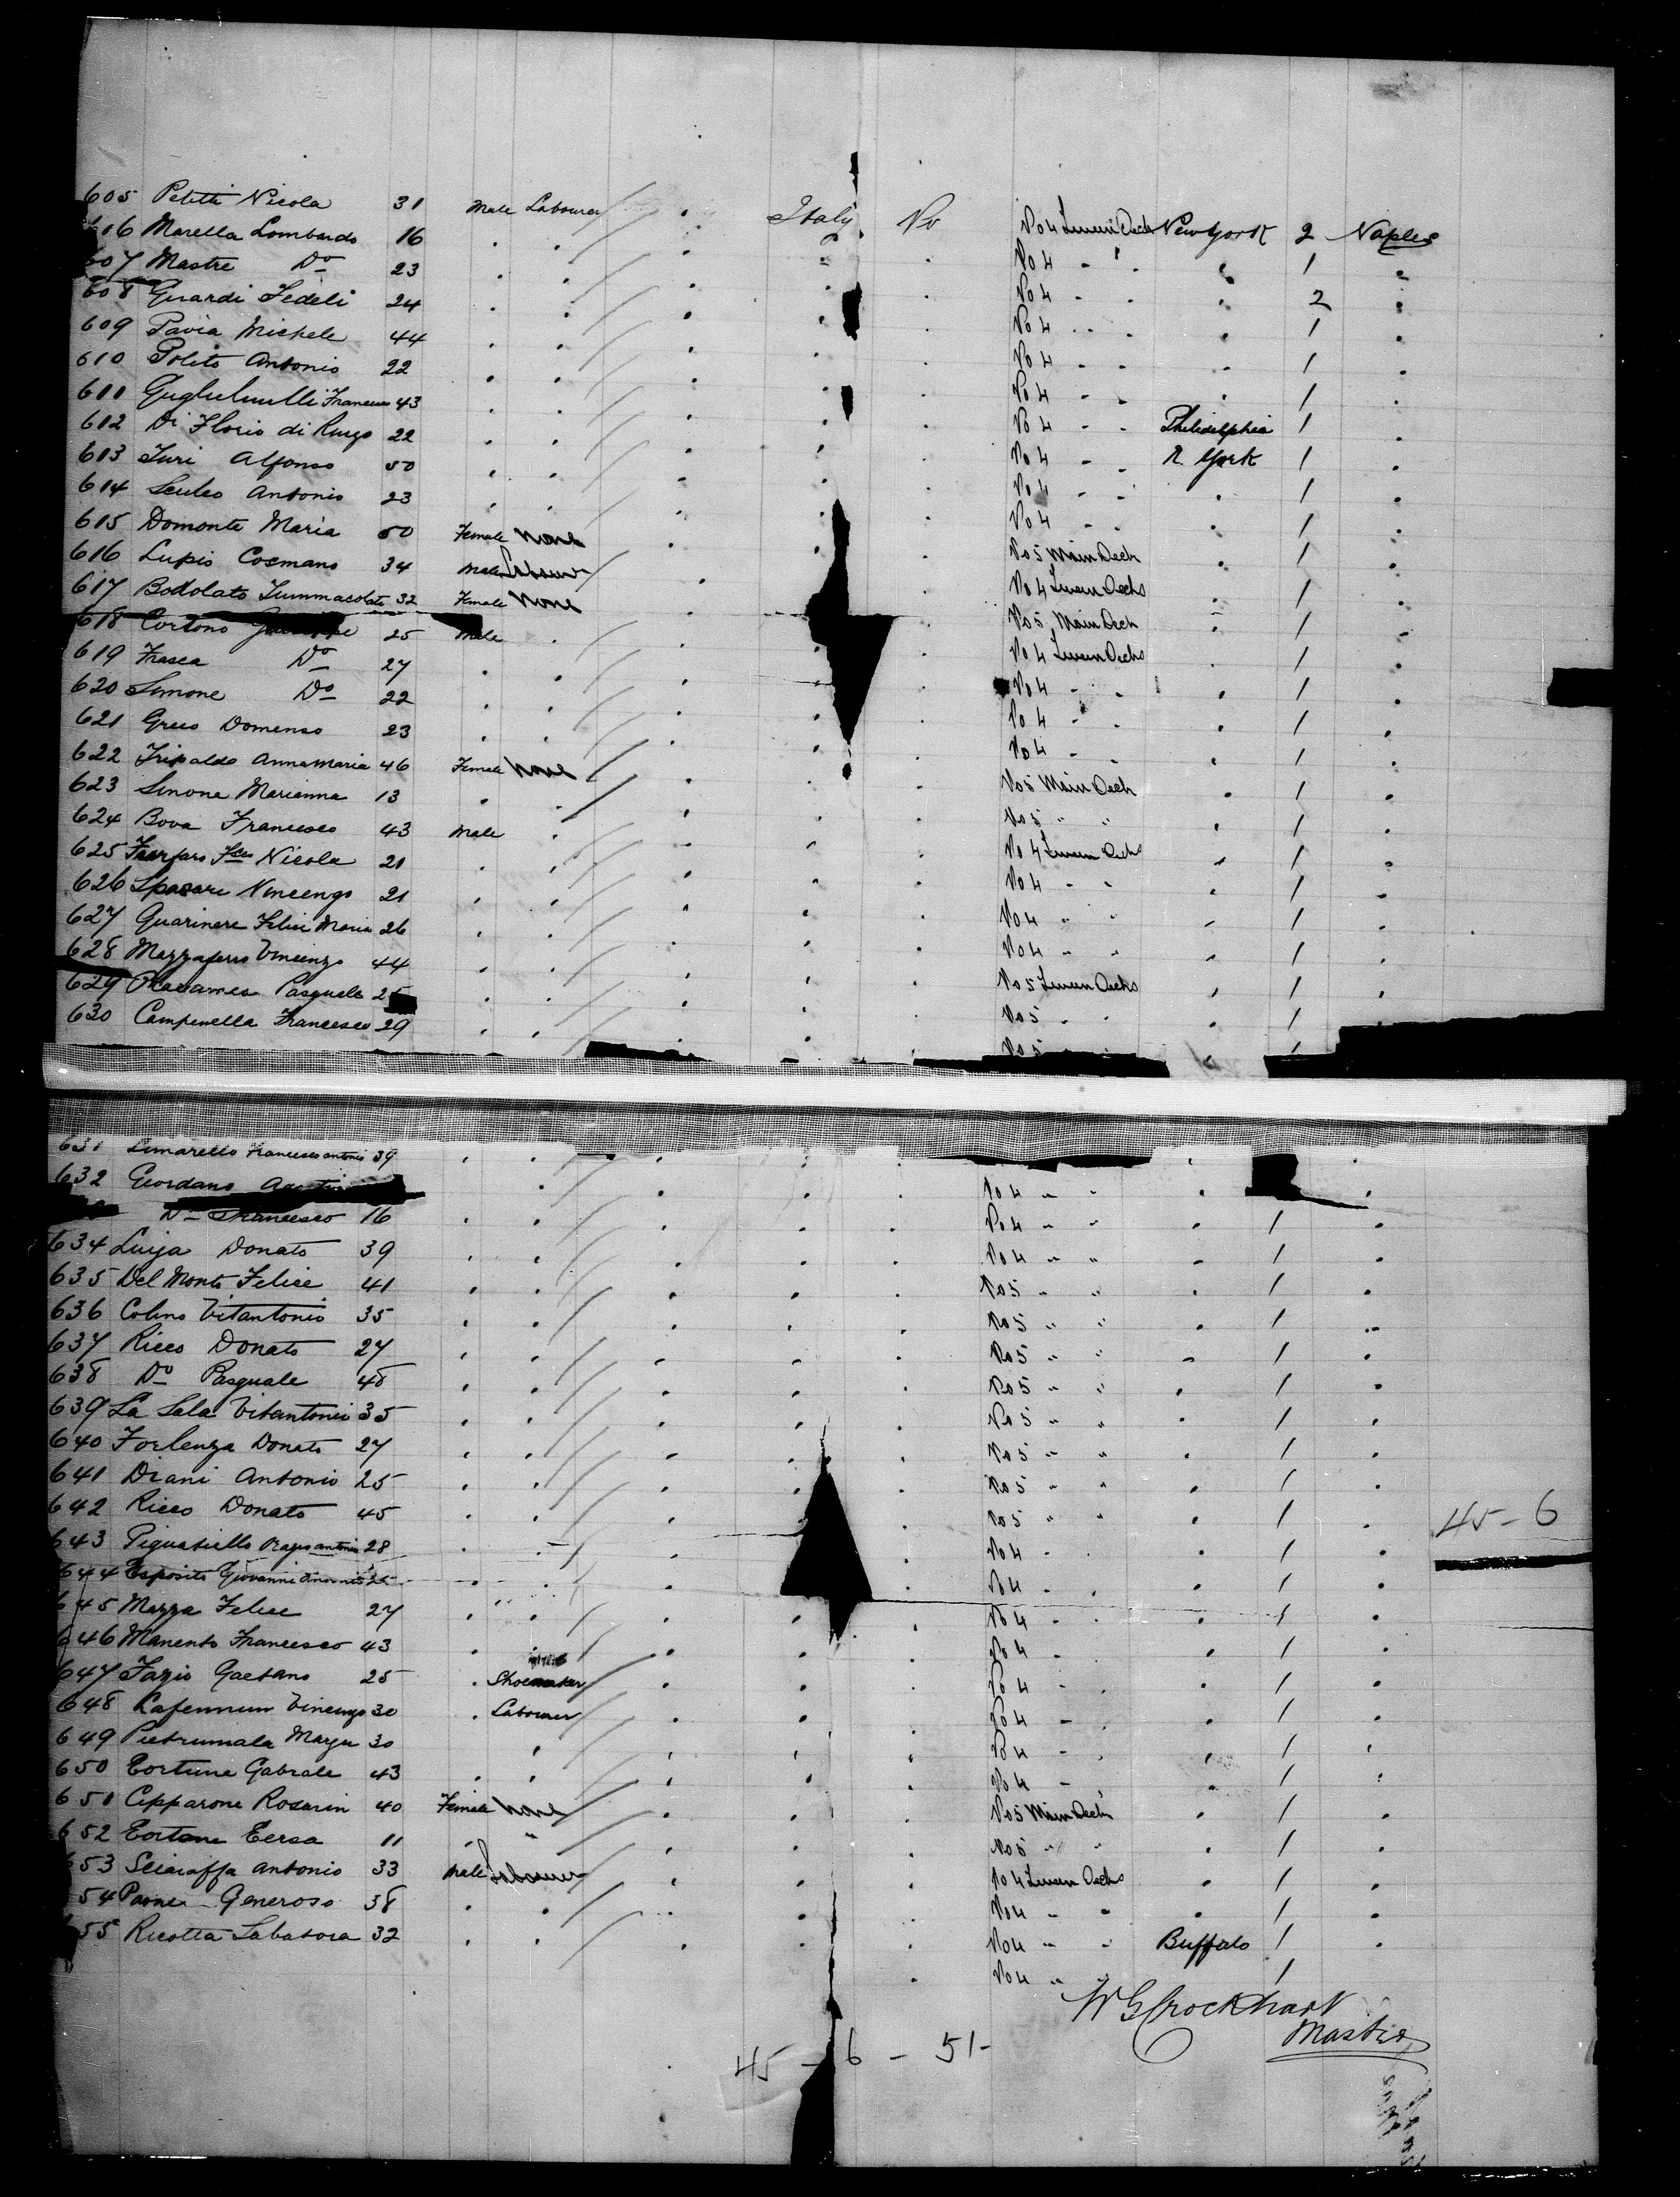 605 Petitti Nicola 31 Male Labourer Italy No No 4 Tween Deck New York 2 Naples
606 Marella Lombardo 16 " " " " No 4 " " " 1 "
607 Mastre Do 23 " " " " No 4 " " " 2 "
608 Guardi Fedeli 24 " " " " No 4 " " " 1 "
609 Pavia Michele 44 " " " " No 4 " " " 1 "
610 Polito Antonio 22 " " " " No 4 " " " 1 "
611 Guglielmelli Francesco 43 " " " " No 4 " " Philidelphia 1 "
612 Di Florio di Rugo 22 " " " " No 4 " " N. York 1 "
613 Juri Alfonso 50 " " " " No 4 " " " 1 "
614 Sculeo Antonio 23 " " " " No 4 " " " 1 "
615 Domonte Maria 50 Female None " " No 5 Main Deck " 1 "
616 Lupis Cosmano 34 Male Labourer " " No 4 Tween Decks " 1 "
617 Bodolato Immacolata 32 Female None " " No 5 Main Deck " 1 "
618 Cortono 25 Male " " " No 4 Tween Decks " 1 "
619 Frasca Do 27 " " " " No 4 " " " 1 "
620 Simone Do 22 " " " " No 4 " " " 1 "
621 Greco Domenso 23 " " " " No 4 " " 1 "
622 Tripaldo Annamaria 46 Female None " " No 5 Main Deck " 1 "
623 Simone Marianna 13 " " " " No 5 " " " 1 "
624 Bova Francesco 43 Male " " " No 4 Tween Decks " 1 "
625 Nicola 21 " " " " No 4 " " " 1 "
626 Spasari Vincenzo 21 " " " " No 4 " " " 1 "
627 Guarinere Felice Maria 26 " " " " No 4 " " " 1 "
628 Mazzaferro Vincenzo 44 " " " " No 5 Tween Decks " 1 "
629 Pasquale 25 " " " " No 5 " " " 1
630 Campenella Francesco 29 " " " No 5 " " " 1
631 Limarello Francesco antonio 39 " " " " " "
632 Giordano " " " No 4 " " " "
Do Francesco 16 " " " " No 4 " " " 1 "
634 Luija Donato 39 " " " " No 4 " " " 1 "
635 Del Monte Felice 41 " " " " No 5 " " " 1 "
636 Colino Vitantonio 35 " " " " No 5 " " " 1 "
637 Ricco Donato 27 " " " " No 5 " " " 1 "
638 Do Pasquale 48 " " " " No 5 " " " 1 "
639 La Sala Vitantonio 35 " " " " No 5 " " " 1 "
640 Forlenza Donato 27 " " " " No 5 " " " 1 "
641 Diani Antonio 25 " " " " No 5 " " " 1 "
642 Ricco Donato 45 " " " No 5 " " " 1 "
45-6
643 Pignatiello antonio 28 " " " No 4 " " 1 "
644 Esposito Giovanni 25 " " " No 4 " " " 1 "
645 Mazza Felice 27 " " " " No 4 " " " 1 "
646 Manento Francesco 43 " " " " No 4 " " 1 "
647 Fazio Gaetano 25 " Shoemaker " " No 4 " " " 1 "
648 Vincenzo 30 " Labourer " " No 4 " " 1 "
649 Pietrumala 30 " " " No 4 " " " 1 "
650 Gabrale 43 " " " " No 4 " " 1 "
651 Cipparone Rosarin 40 Female None " " No 5 Main Deck " 1 "
652 11 " " " " No 5 " " " 1 "
653 Sciaraffa Antonio 33 Male Labourer " " No 4 Tween Decks " 1 "
54 Paone Generoso 38 " " " " No 4 " " " 1 "
55 Ricotta Sabatora 32 " " " " No 4 " " Buffalo 1 "
No 4 " " 1
W G Crockhart
Master
45 - 6 - 51-